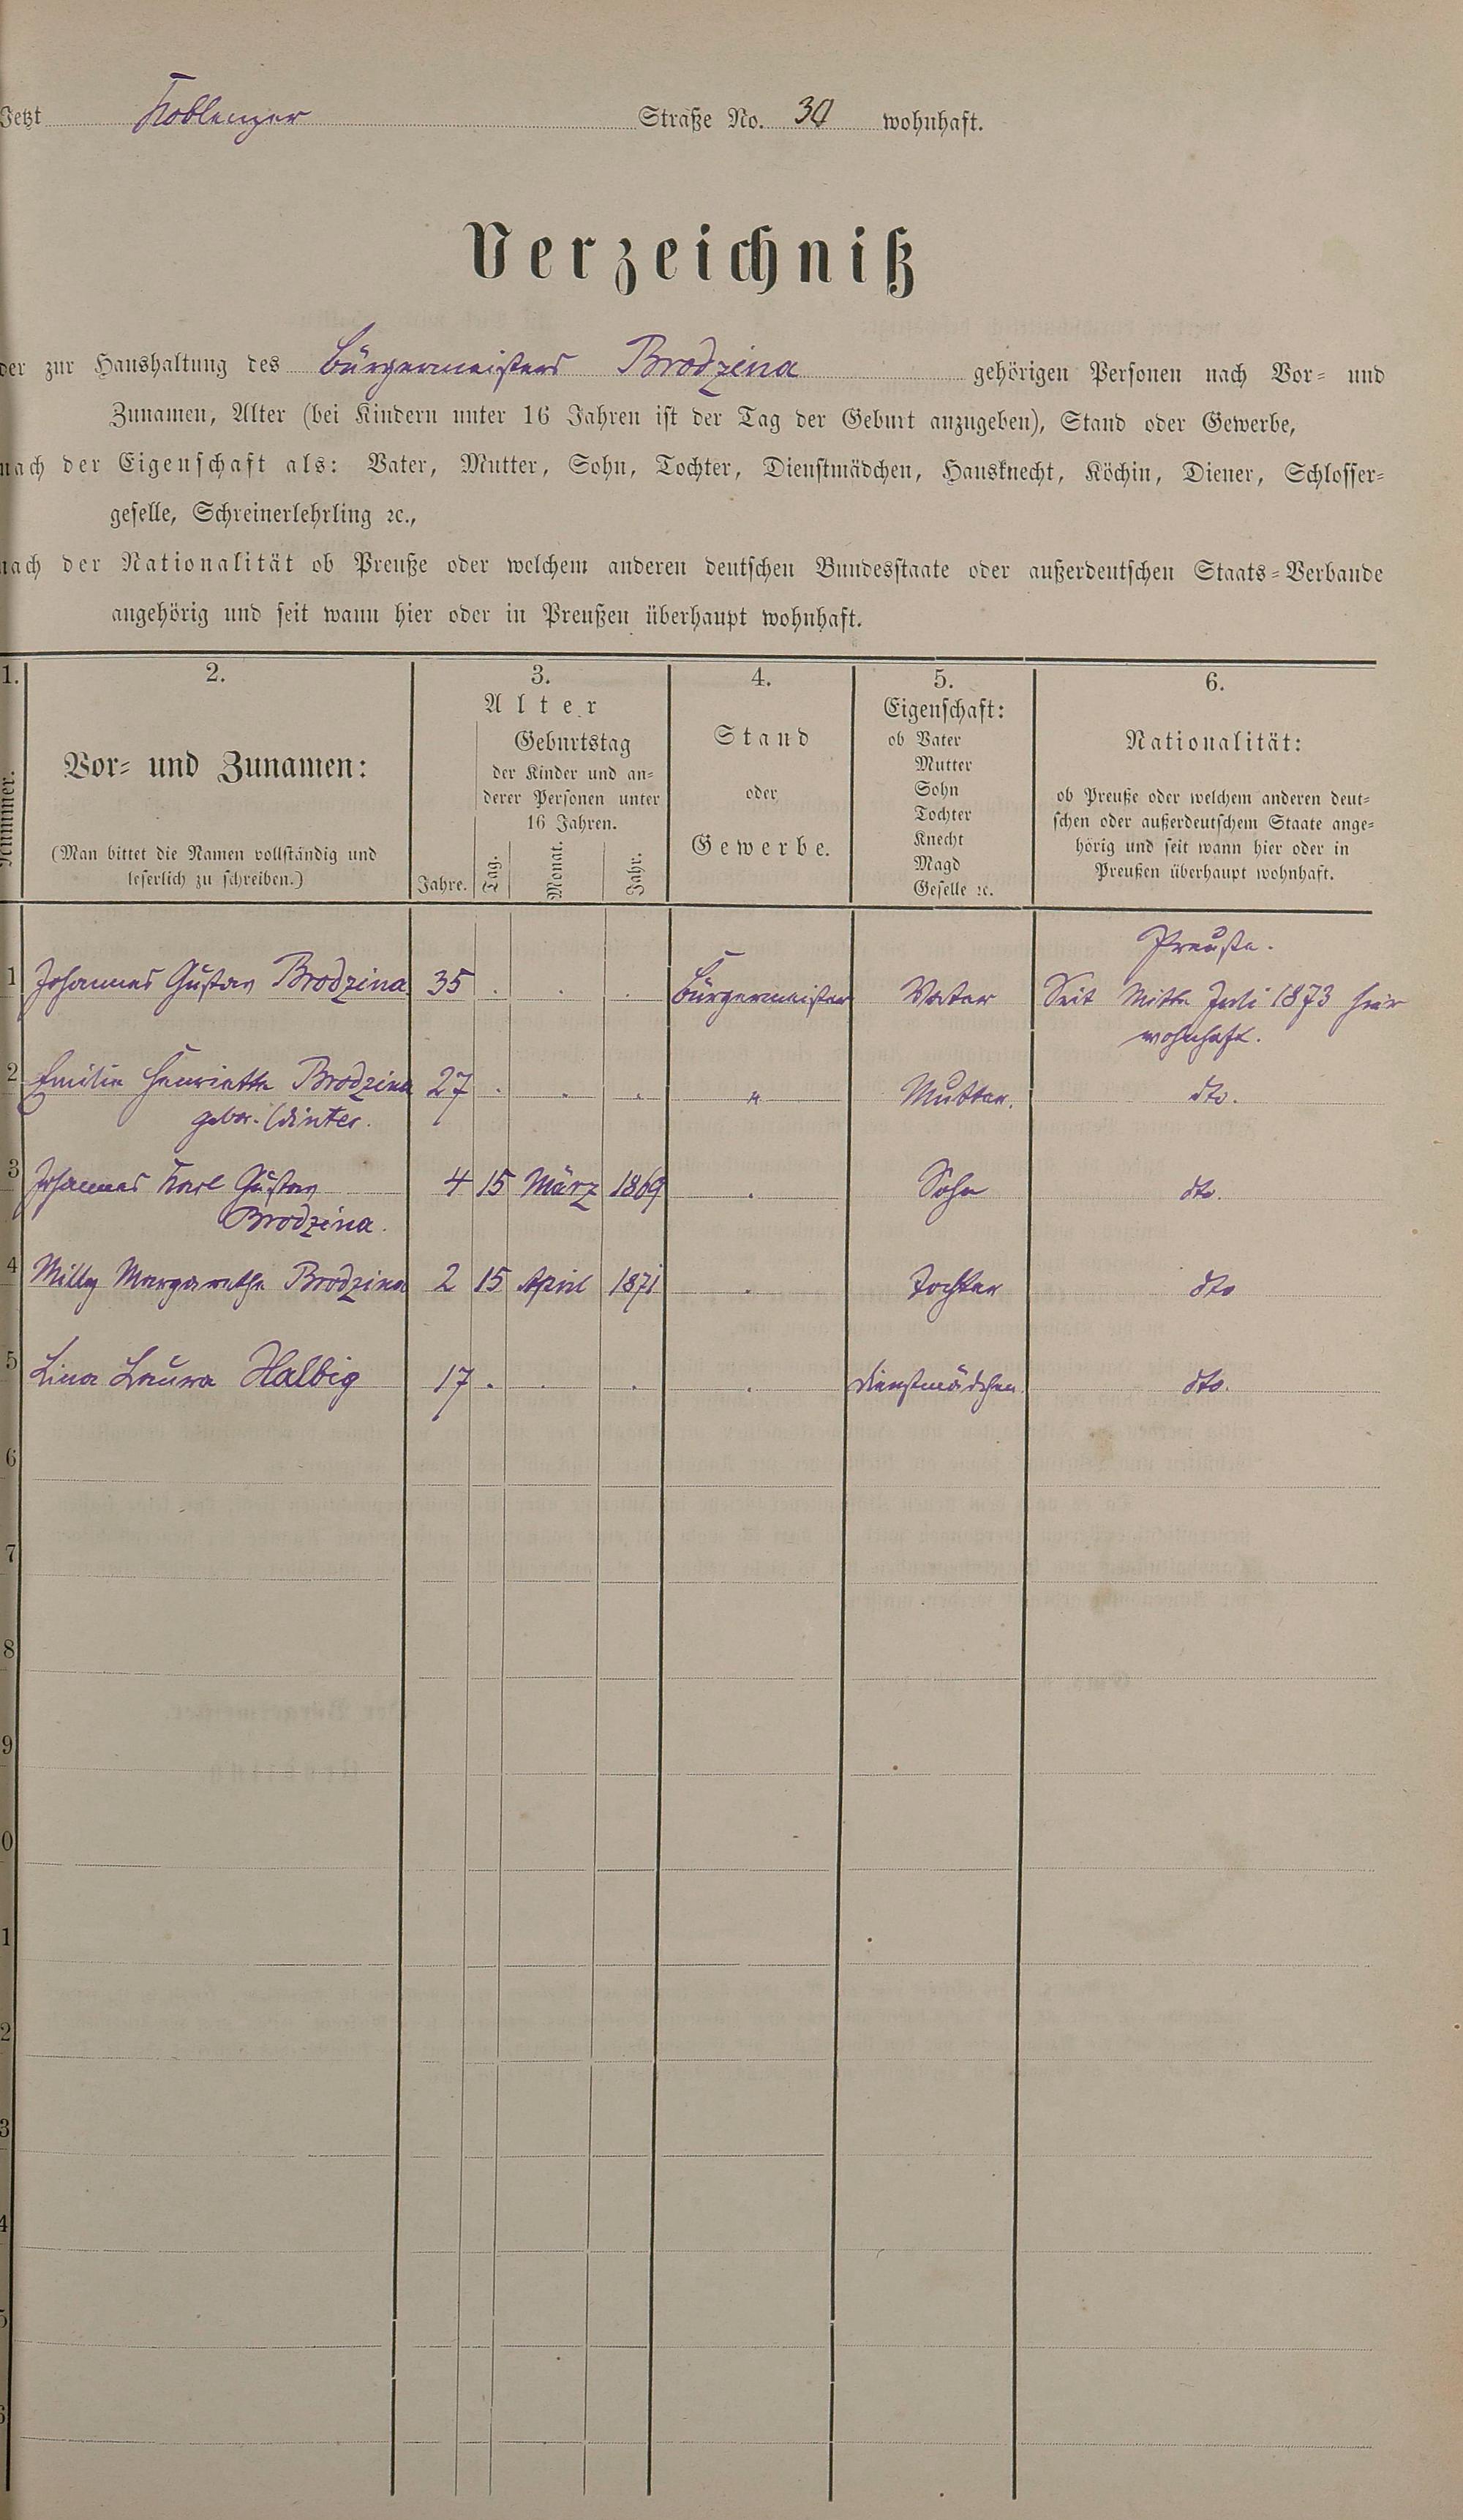 Jetzt Koblenzer Straße No. 30 wohnhaft.
Verzeichniß
der zur Haushaltung des Bürgermeisters Brodzina gehörigen Personen nach Vor- und
Zunamen, Alter (bei Kindern unter 16 Jahren ist der Tag der Geburt anzugeben), Stand oder Gewerbe,
nach der Eigenschaft als: Vater, Mutter, Sohn, Tochter, Dienstmädchen, Hausknecht, Köchin, Diener, Schlosser-
geselle, Schreinerlehrling ꝛc.,
nach der Nationalität ob Preuße oder welchem anderen deutschen Bundesstaate oder außerdeutschen Staats-Verbande
angehörig und seit wann hier oder in Preußen überhaupt wohnhaft.
1. 2. 3. 4. 5. 6.
Nummer.
Vor- und Zunamen:
(Man bittet die Namen vollständig und
leserlich zu schreiben.)
Alter
Geburtstag
der Kinder und an-
derer Personen unter
16 Jahren.
Jahre. Tag. Monat. Jahr.
Stand
oder
Gewerbe.
Eigenschaft:
ob Vater
Mutter
Sohn
Tochter
Knecht
Magd
Geselle ꝛc.
Nationalität:
ob Preuße oder welchem anderen deut-
schen oder außerdeutschem Staate ange-
hörig und seit wann hier oder in
Preußen überhaupt wohnhaft.
Preuße.
1 Johannes Gustav Brodzina 35 . . . Bürgermeister Vater Seit Mitte Juli 1873 hier
wohnhaft.
2 Emilie Henriette Brodzina 27 . . . " Mutter. dto.
gebor. Winter.
3 Johannes Karl Gustav 4 15 März 1869 . Sohn dto.
Brodzina.
4 Milly Margarethe Brodzina 2 15 April 1871 . Tochter dto
5 Lina Laura Halbig 17 . . . . Dienstmädchen. dto.
6
7
8
9
0
1
2
3
4
5
6